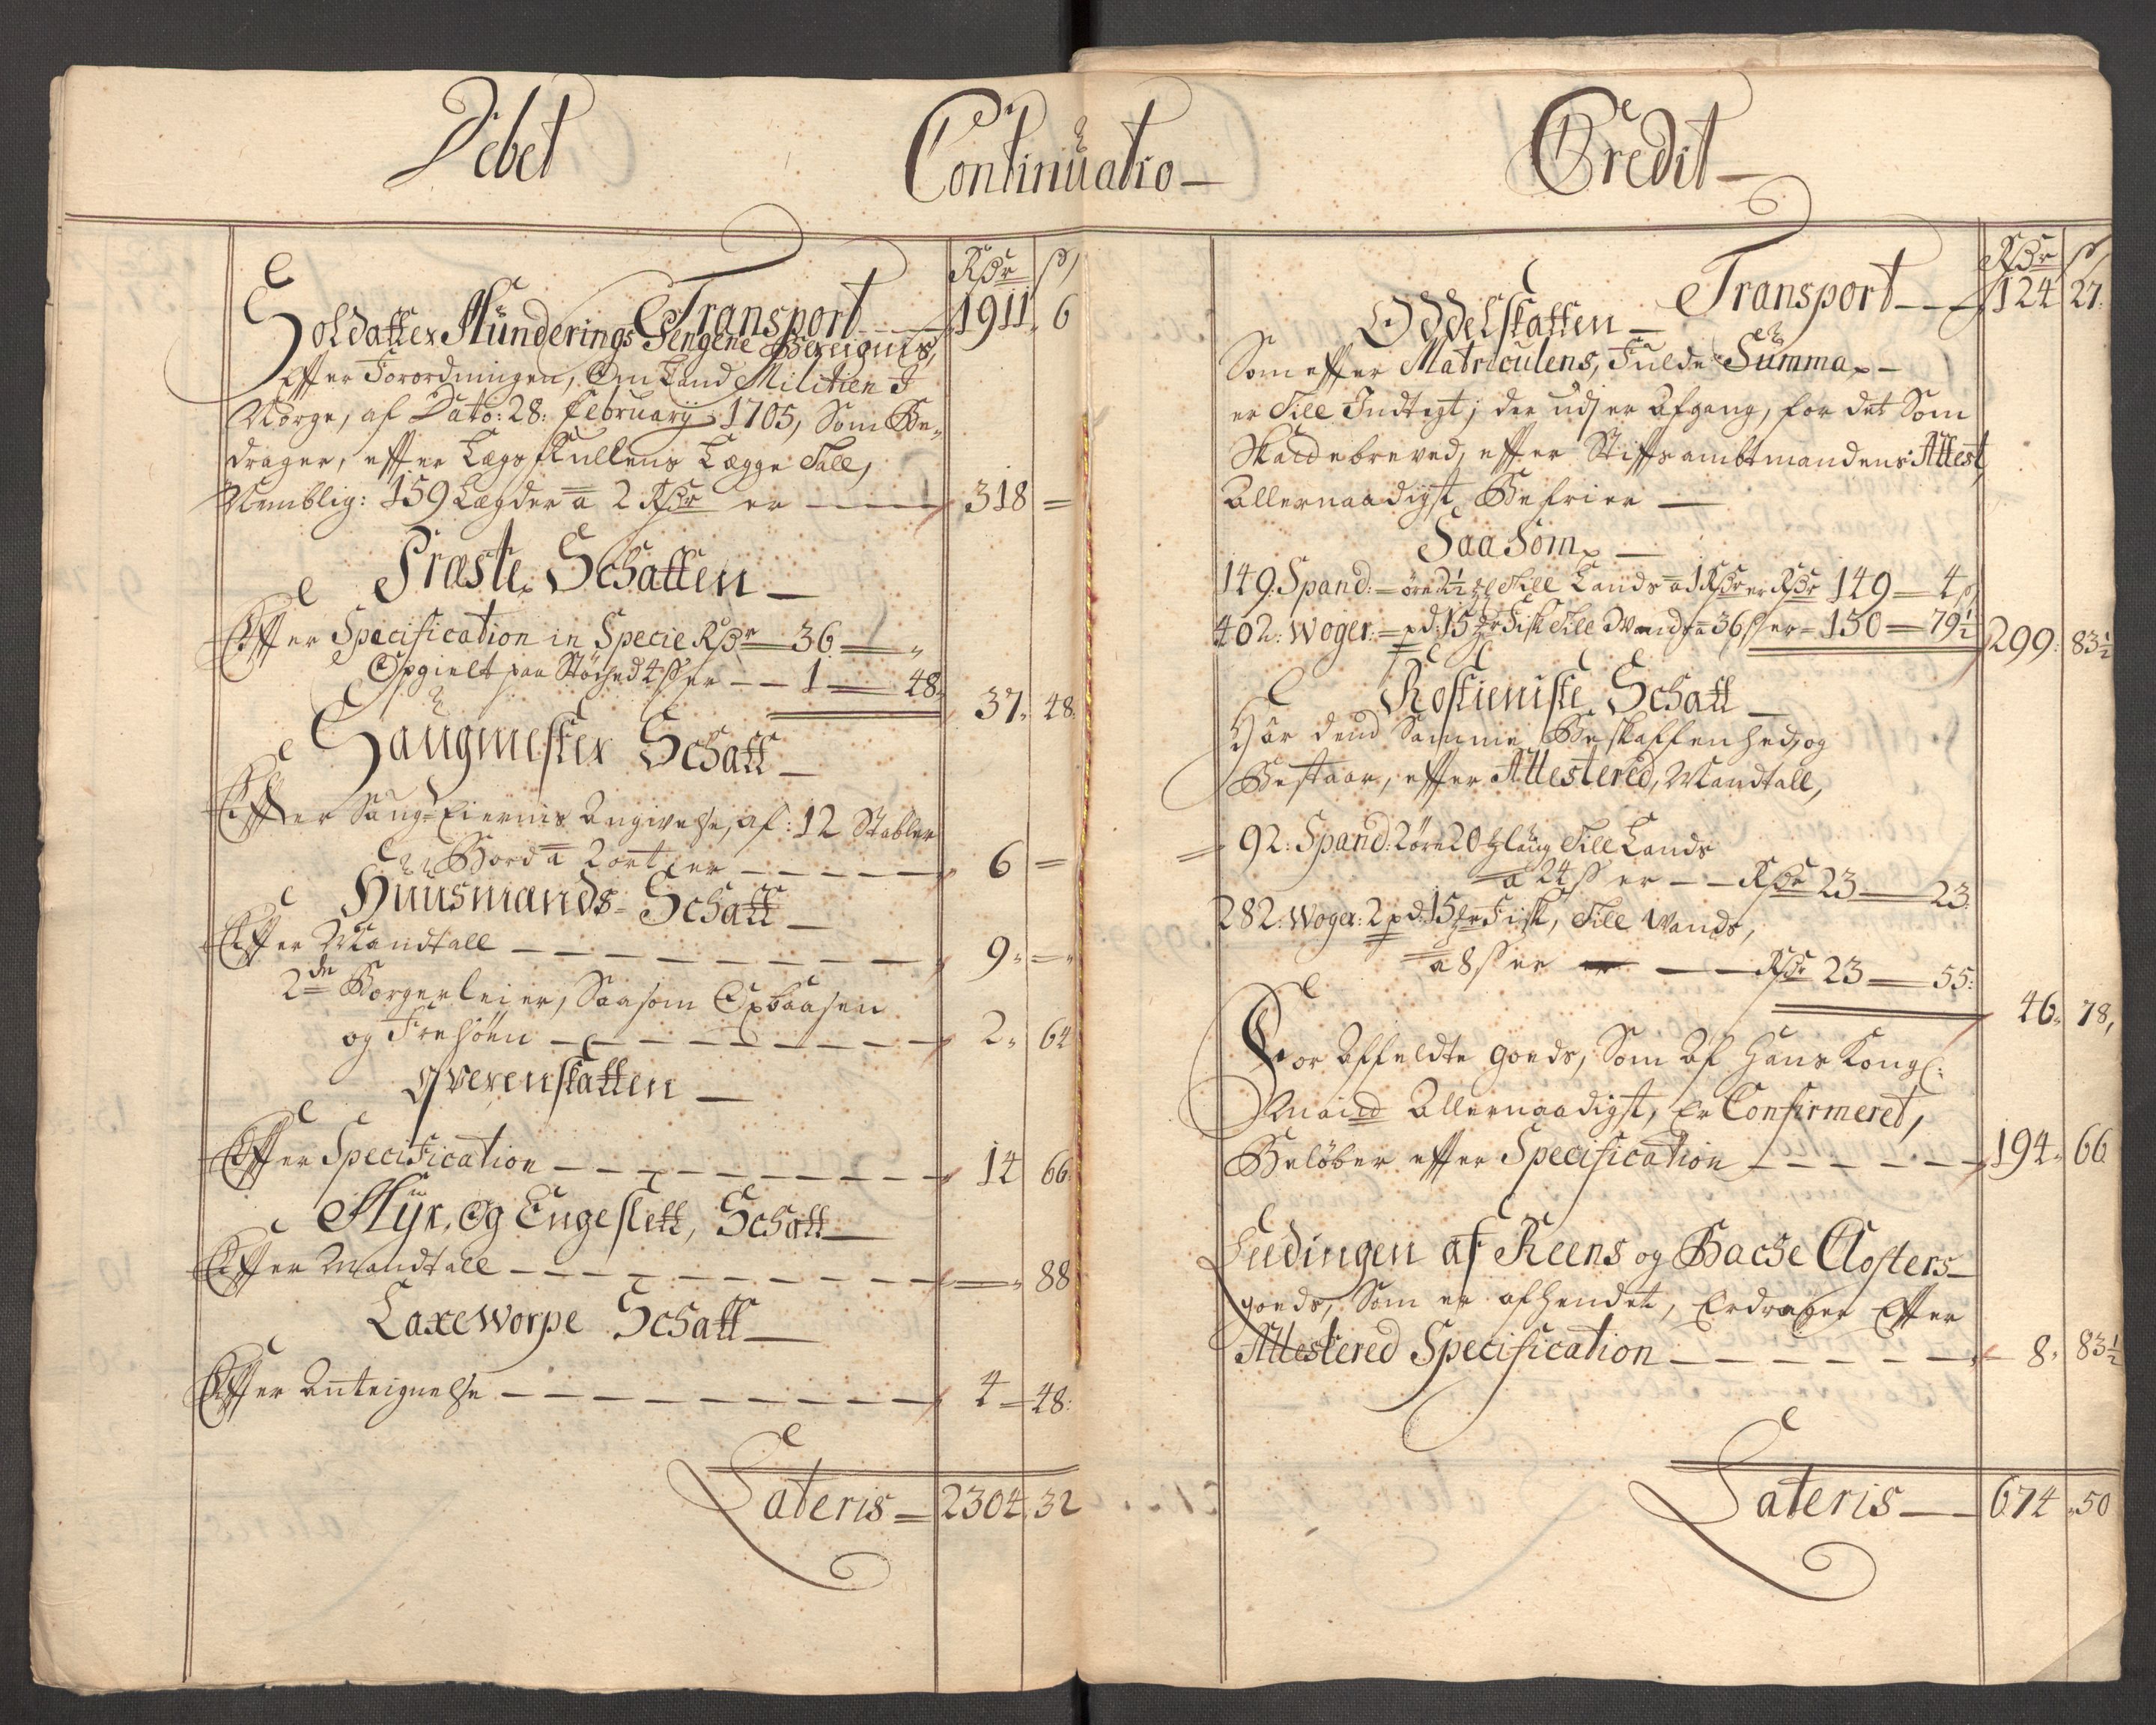 Debet
Continuatio
Credit
Rdr ß
Transport - - 1911. 6
Soldatter Munderings Pengene Beregnis,
Effter Forordningen, Om Land Militien I
Norge, af Dato: 28: February 1705, Som Be-
drager, effter Lægs Rullens Lægge Tall,
Nemblig: 159 Lægder à 2 Rdr er - - - 318 =
Præste Schatten
Effter Specification in Specie Rdr 36 - "
Opgield paa Støched 4 ß er - - 1 - 48.
37. 48.
Saugmester Schatt
Effter Saug-Eiernis Angivelse, af: 12 Stabler
Bord à 2 ort er - - - - - 6 =
Huusmands Schatt
Effter Mandtall - - - - - - - 9. =
2de Borgerleier, Saasom
og Frehøen - - - - - - - 2. 64
Qvernskatten
Effter Specification - - - - - - - 14 66.
Myr, og Engeslett, Schatt
Effter Mandtall - - - - - - - = 88
Laxeworpe Schatt
Effter Anteignelse - - - - - - - 4 - 48.
Lateris = 2304. 32
Rdr ß
Transport - - 124 27.
Oddelskatten
Som effter Matriculens, Fulde Summa
er Till Indtegt; der udj er Afgang, for det Som
Skaidebreved, effter Stiffts ambtmandens Attest,
Allernaadigst Befrier
Saasom
149. Spand: = øre 2½ Till Lands à 1 Rdr er Rdr 149 - 4 ß
402: Woger = pd: 15 Fisk Till Wands à 36 ß er - 150 = 79½
299. 83½
Rostieniste Schatt
Har dend Samme Beskaffenhed, og
Bestaar, effter Attestered, Mandtall,
92: Spand: 2 øre 20 Till Lands
à 24 ß er - - Rdr 23 - 23.
282: Woger: 2 pd: 15 Fisk, Till Wands,
à 8 ß er - - Rdr 23 - 55:
46. 78,
For Affeldte goeds, Som Af Hans Kongl:
Maitt Allernaadigst, Er Confirmeret,
Beløber effter Specification - - - - - 194. 66
Ledingen af Reens og Bache Closters
goeds, Som er afhendet, Erdrager Effter
Attestered Specification - - - - - - 8. 83½
Lateris - - 674 .50